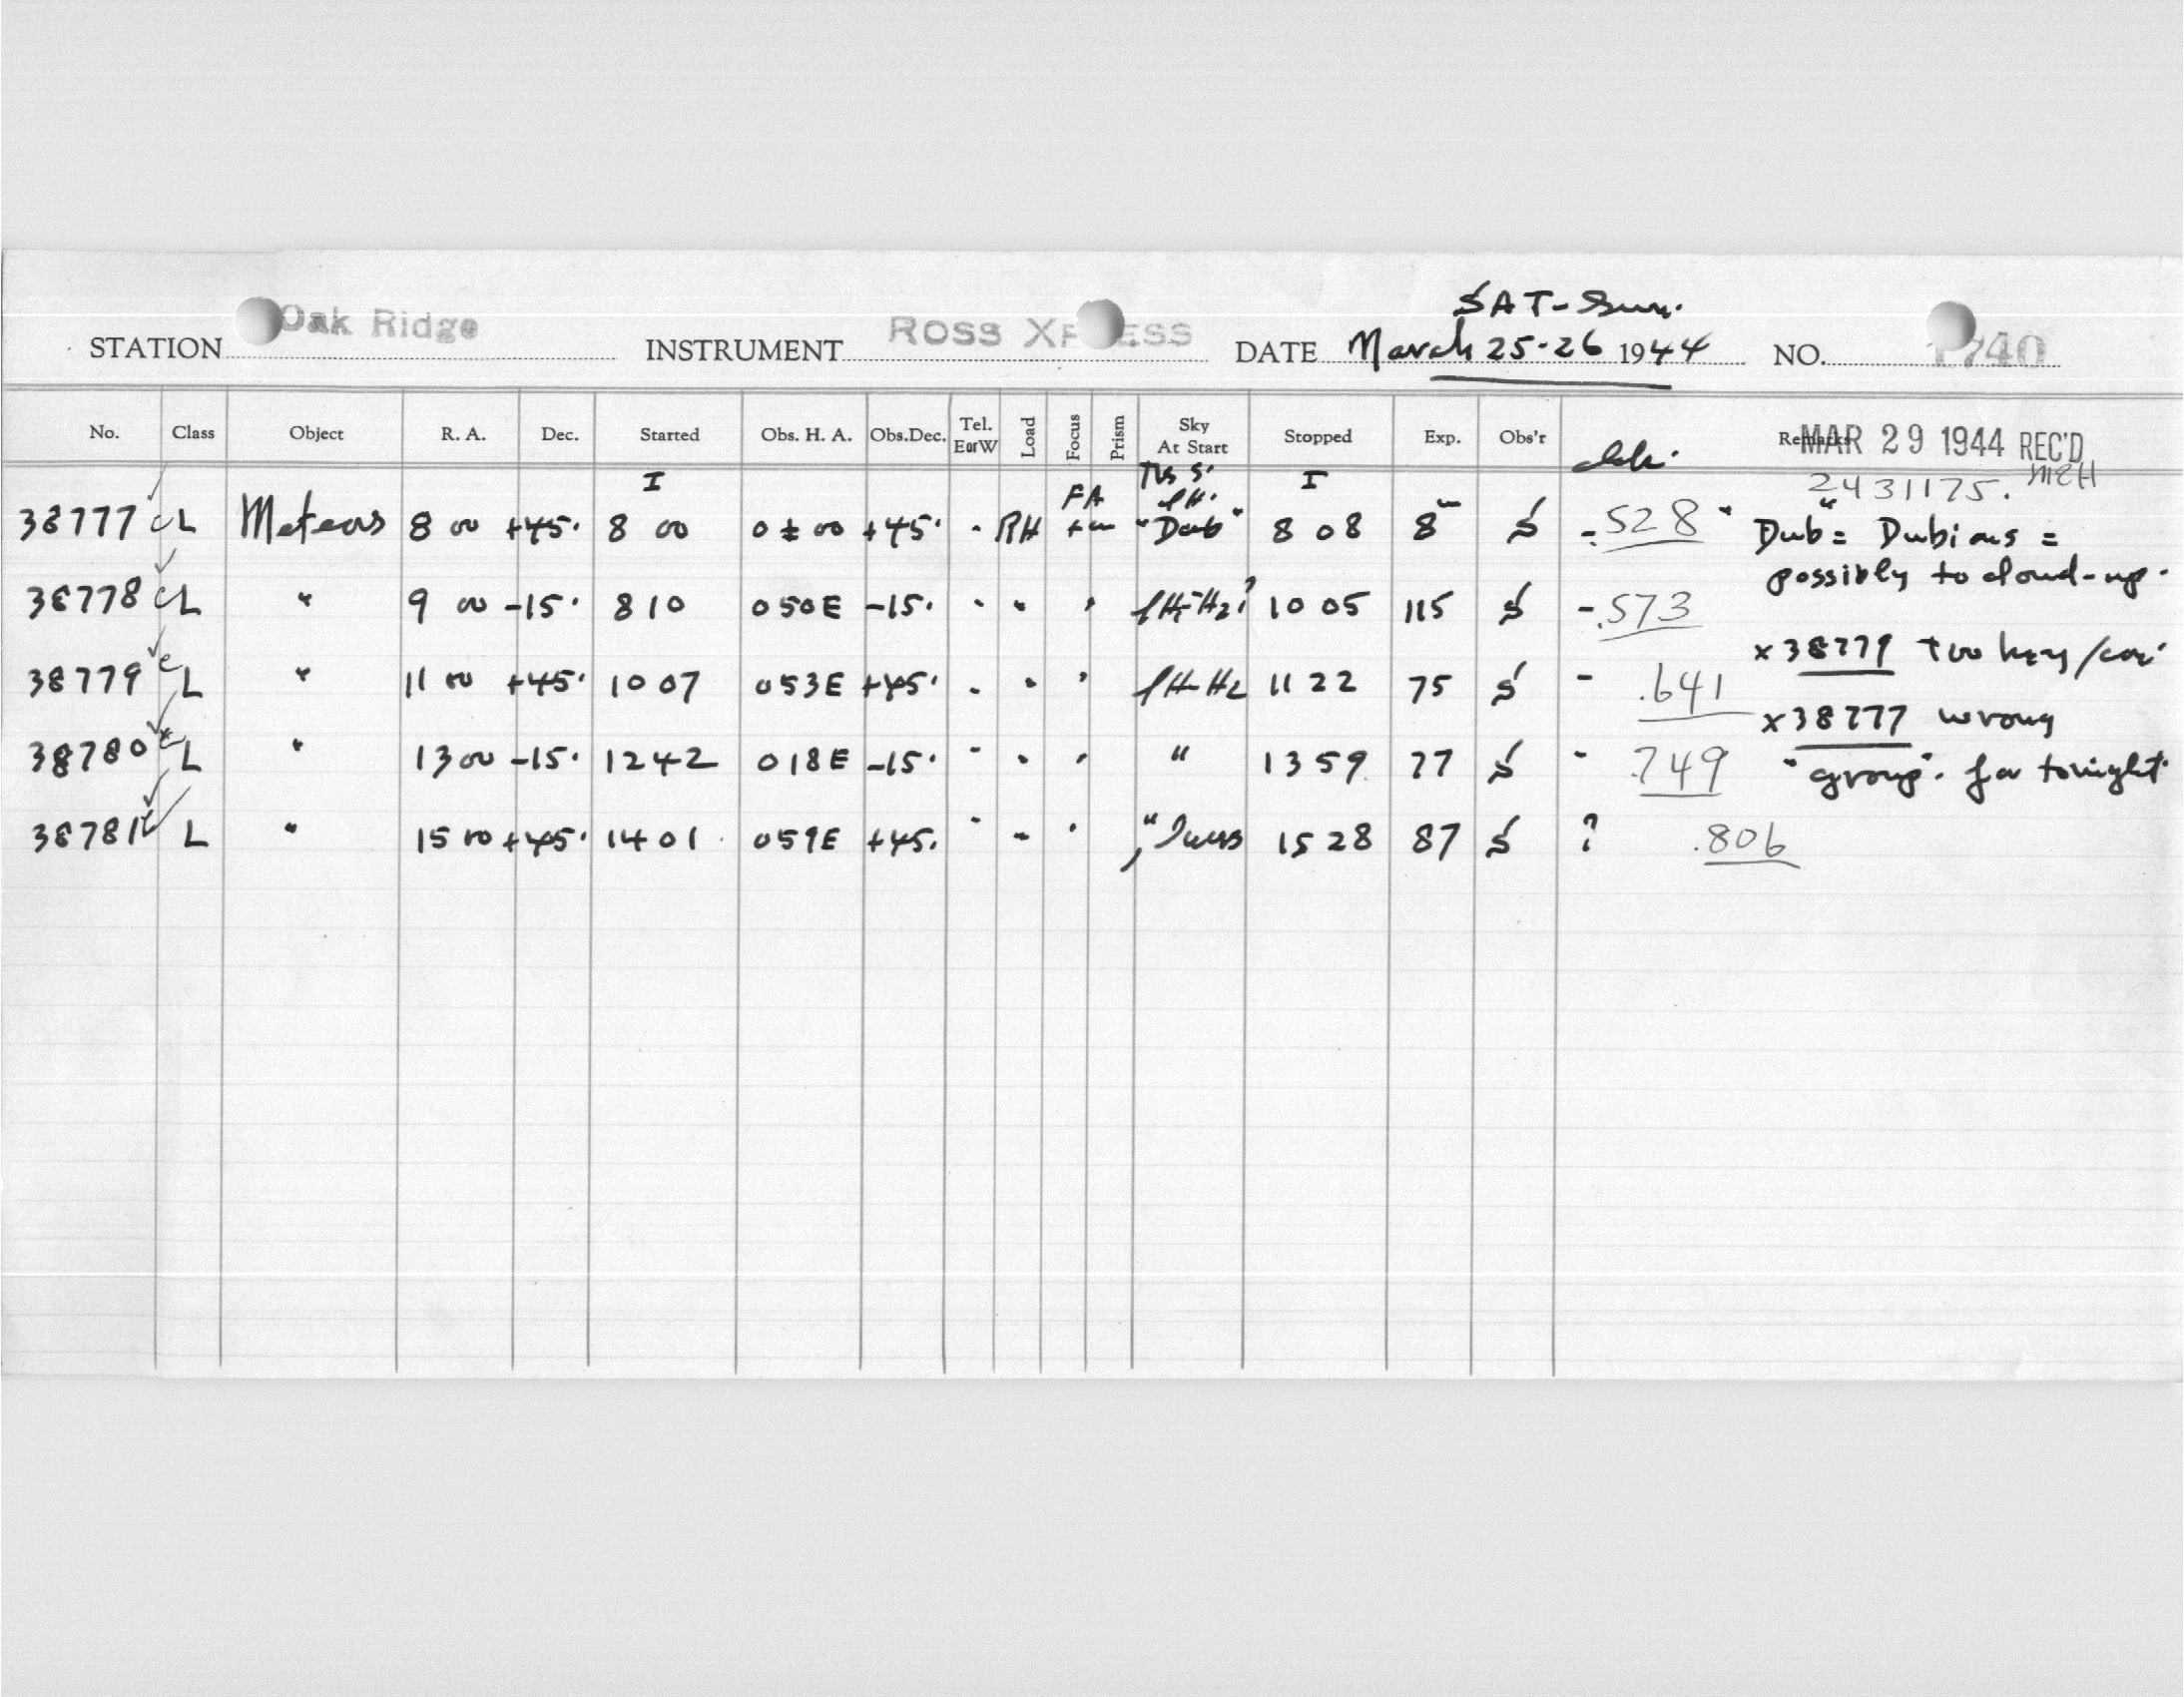 SAT-Sun.
STATION Oak Ridge INSTRUMENT ROSS DATE March 25-26 1944 NO. 1740
No. Class Object R. A. Dec. Started Obs. H. A. Obs.Dec. Tel. EorW Load Focus Prism Sky At Start Stopped Exp. Obs'r Remarks MAR 29 1944 REC'D
I I 2431175. MEH
38777 L Meteors 8 00 +45. 8 00 0 ± 00 +45. - RH FA "Dub" 8 08 8 S - .528 Dub = Dubious =
possibly to cloud-up.
38778 L " 9 00 -15. 8 10 0 50 E -15. " " " 10 05 115 S - .573
x 38779 too
38779 L " 11 00 +45. 10 07 0 53 E +45. " " " H-H2 11 22 75 S - .641
x 38777 wrong
38780 L " 13 00 -15. 12 42 0 18 E -15. " " " " 13 59 77 S - .749 "group". for tonight
38781 L " 15 00 +45. 14 01 0 59 E +45. " " " " 15 28 87 S ? .806